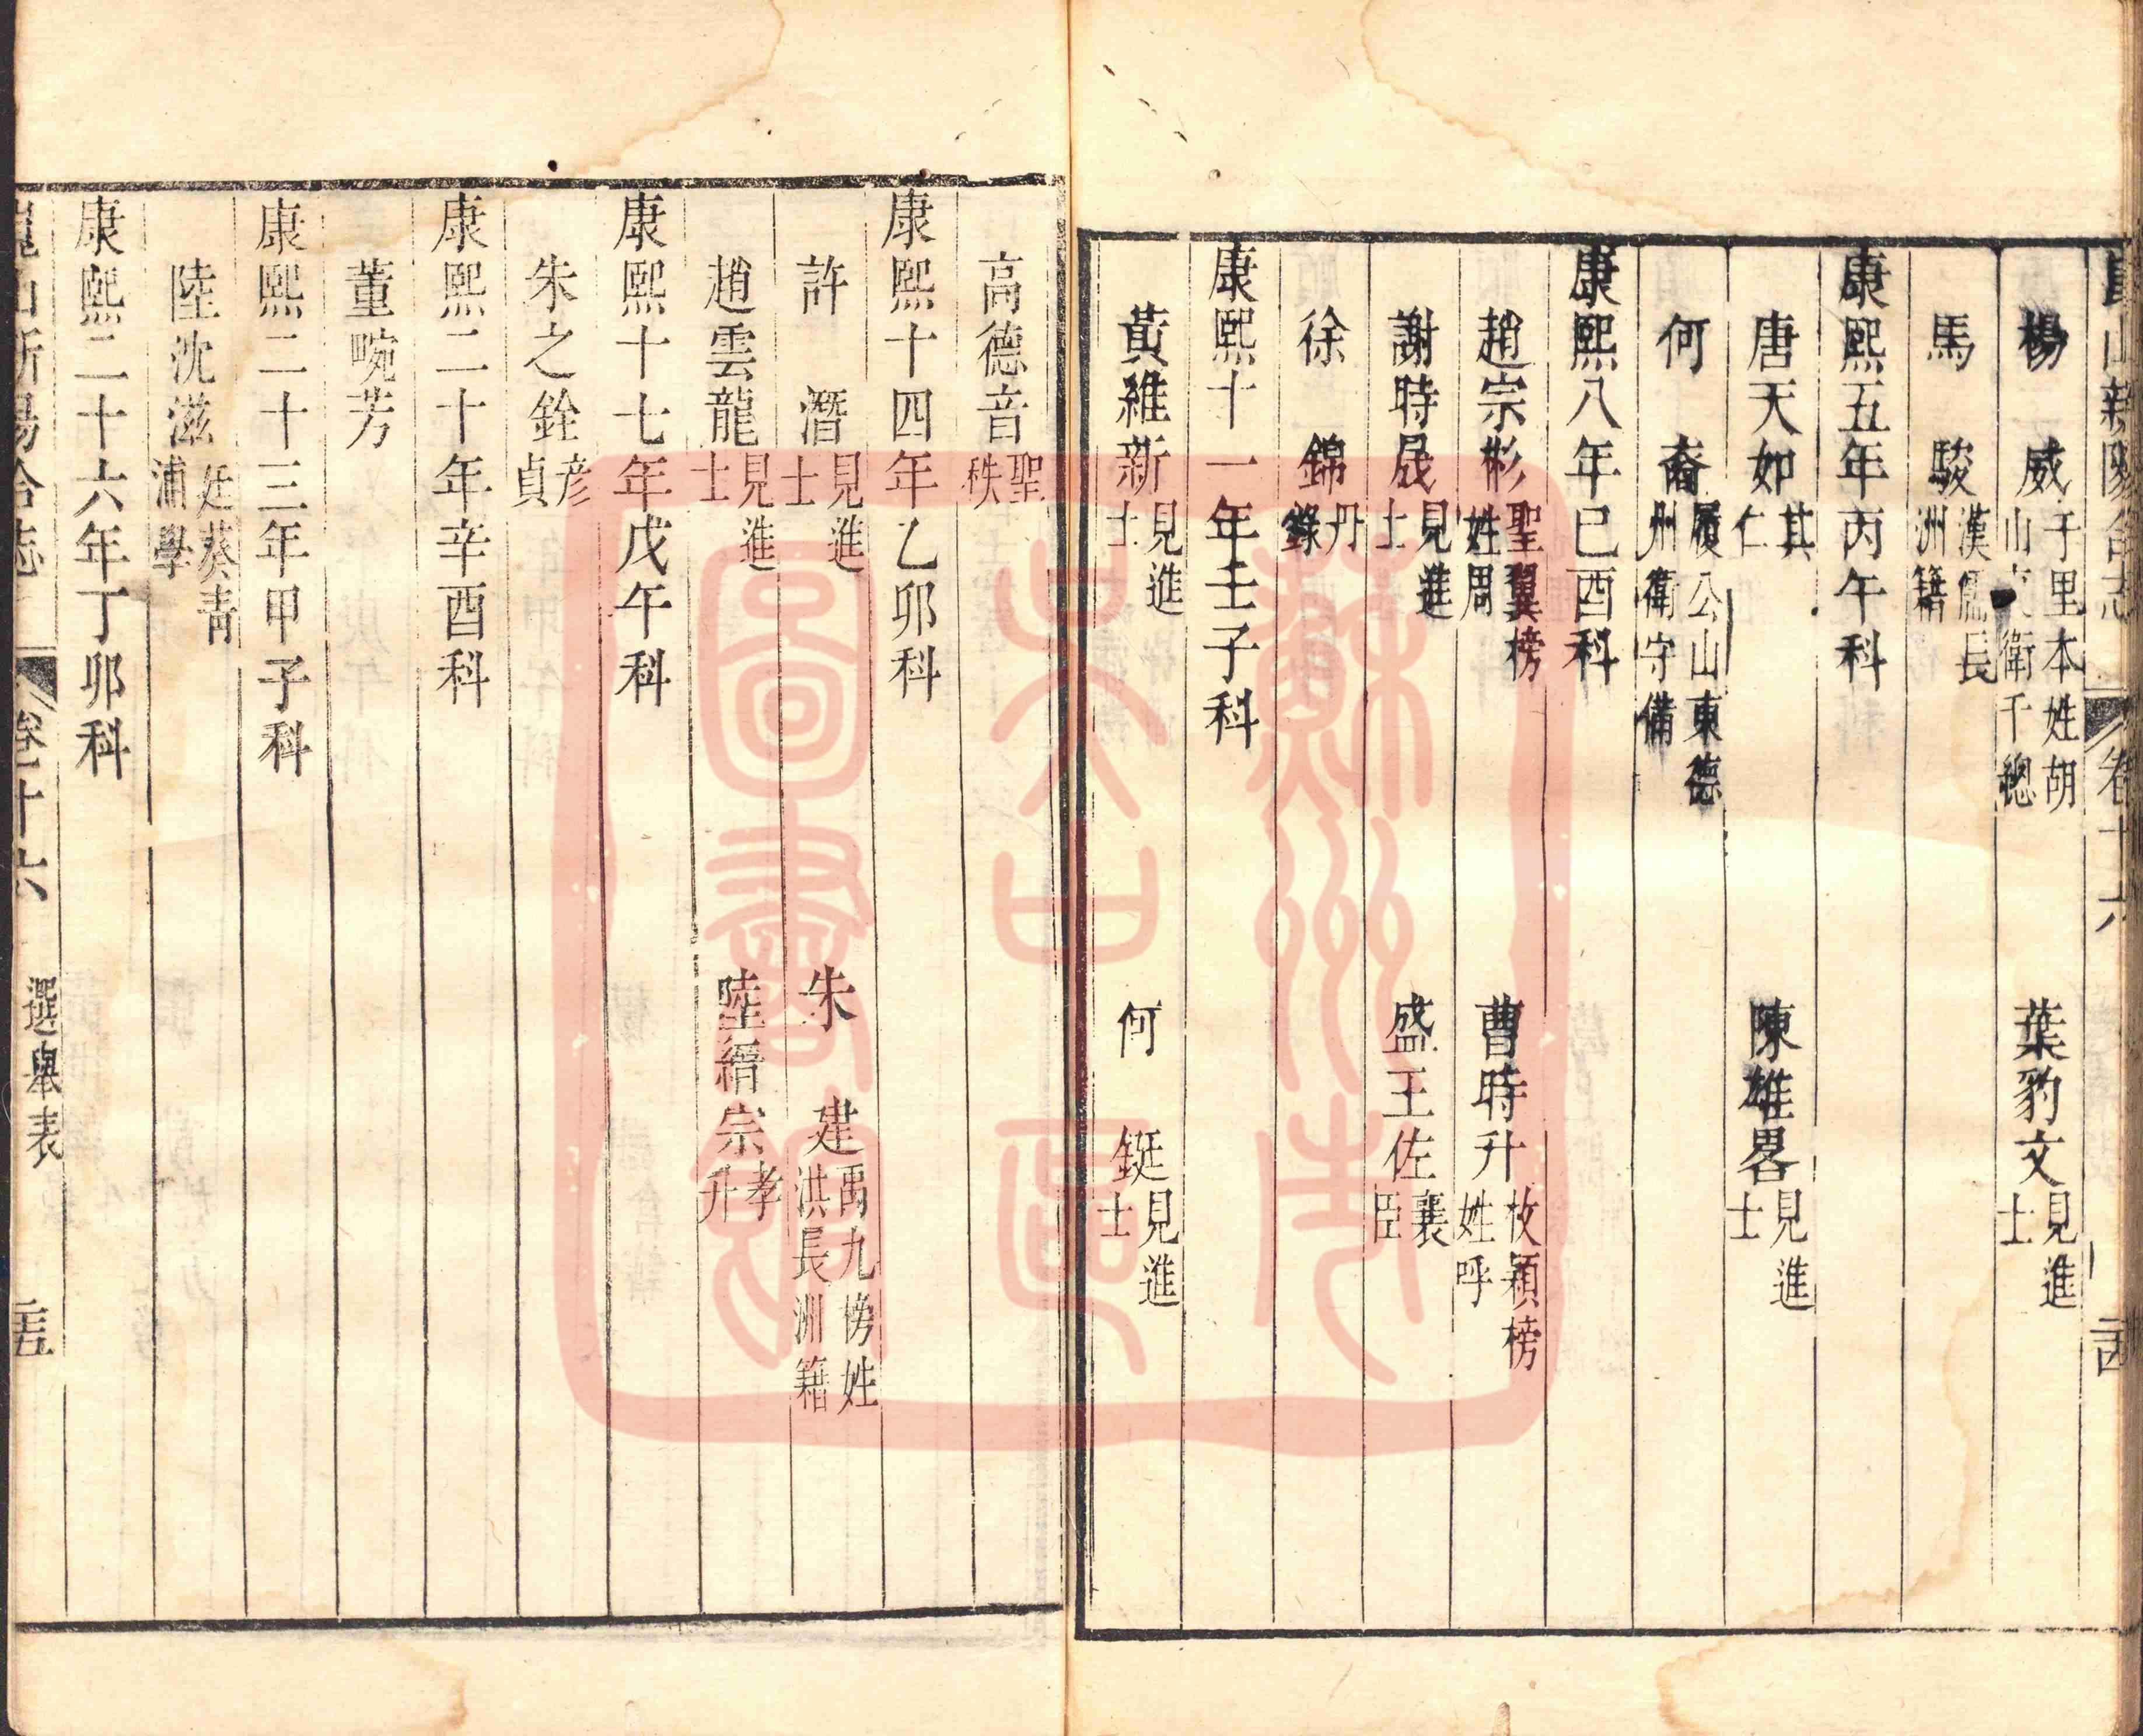 崑山新陽合志 卷十六 二十四
楊 威 子里本姓胡 山 衛千總 葉豹文 見進士
馬 駿 漢儒長洲籍
康熙五年丙午科
唐天如 其仁 陳雄畧 見進士
何 裔 履公山東德州衛守備
康熙八年己酉科
趙宗彬 聖翼榜姓周 曹時升 枚穎榜姓呼
謝時晟 見進士 盛王佐 襄臣
徐 錦 丹錄
康熙十一年壬子科
黃維新 見進士 何 鋌 見進士
高德音 聖秩
康熙十四年乙卯科
許 潛 見進士 朱 建 禹九榜姓洪長洲籍
趙雲龍 見進士 陸縉宗 孝升
康熙十七年戊午科
朱之銓 彥貞
康熙二十年辛酉科
董畹芳
康熙二十三年甲子科
陸沈滋 廷葵青浦學
康熙二十六年丁卯科
崑山新陽合志 卷十六 選舉表 二十五
蘇州市吳中區圖書館